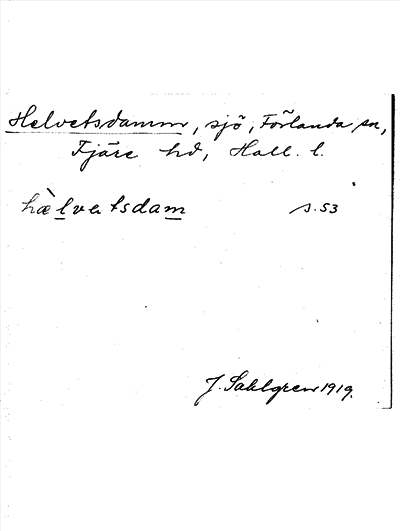 Helvetsdamm, sjö, Förlanda sn,
Fjäre hd, Hall. l.
hæ̀lvetsdam s. 53
J. Sahlgren 1919.